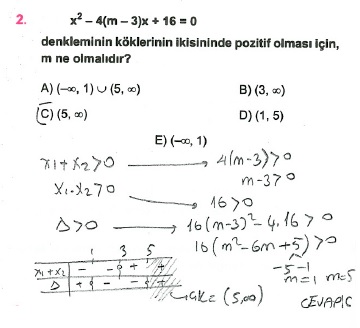 2. x² – 4(m – 3)x + 16 = 0
denkleminin köklerinin ikisininde pozitif olması için,
m ne olmalıdır?
A) (–∞, 1) ∪ (5, ∞) B) (3, ∞)
C) (5, ∞) D) (1, 5)
E) (–∞, 1)
x1+x2>0 → 4(m-3)>0
m-3>0
x1.x2>0 → 16>0
Δ>0 → 16(m-3)²-4.16>0
16(m²-6m+5)>0
-5 -1
m=1 m=5
1 3 5
x1+x2 - - 0 + +
Δ + 0 - - 0 +
Ç.K= (5,∞)
CEVAP:C